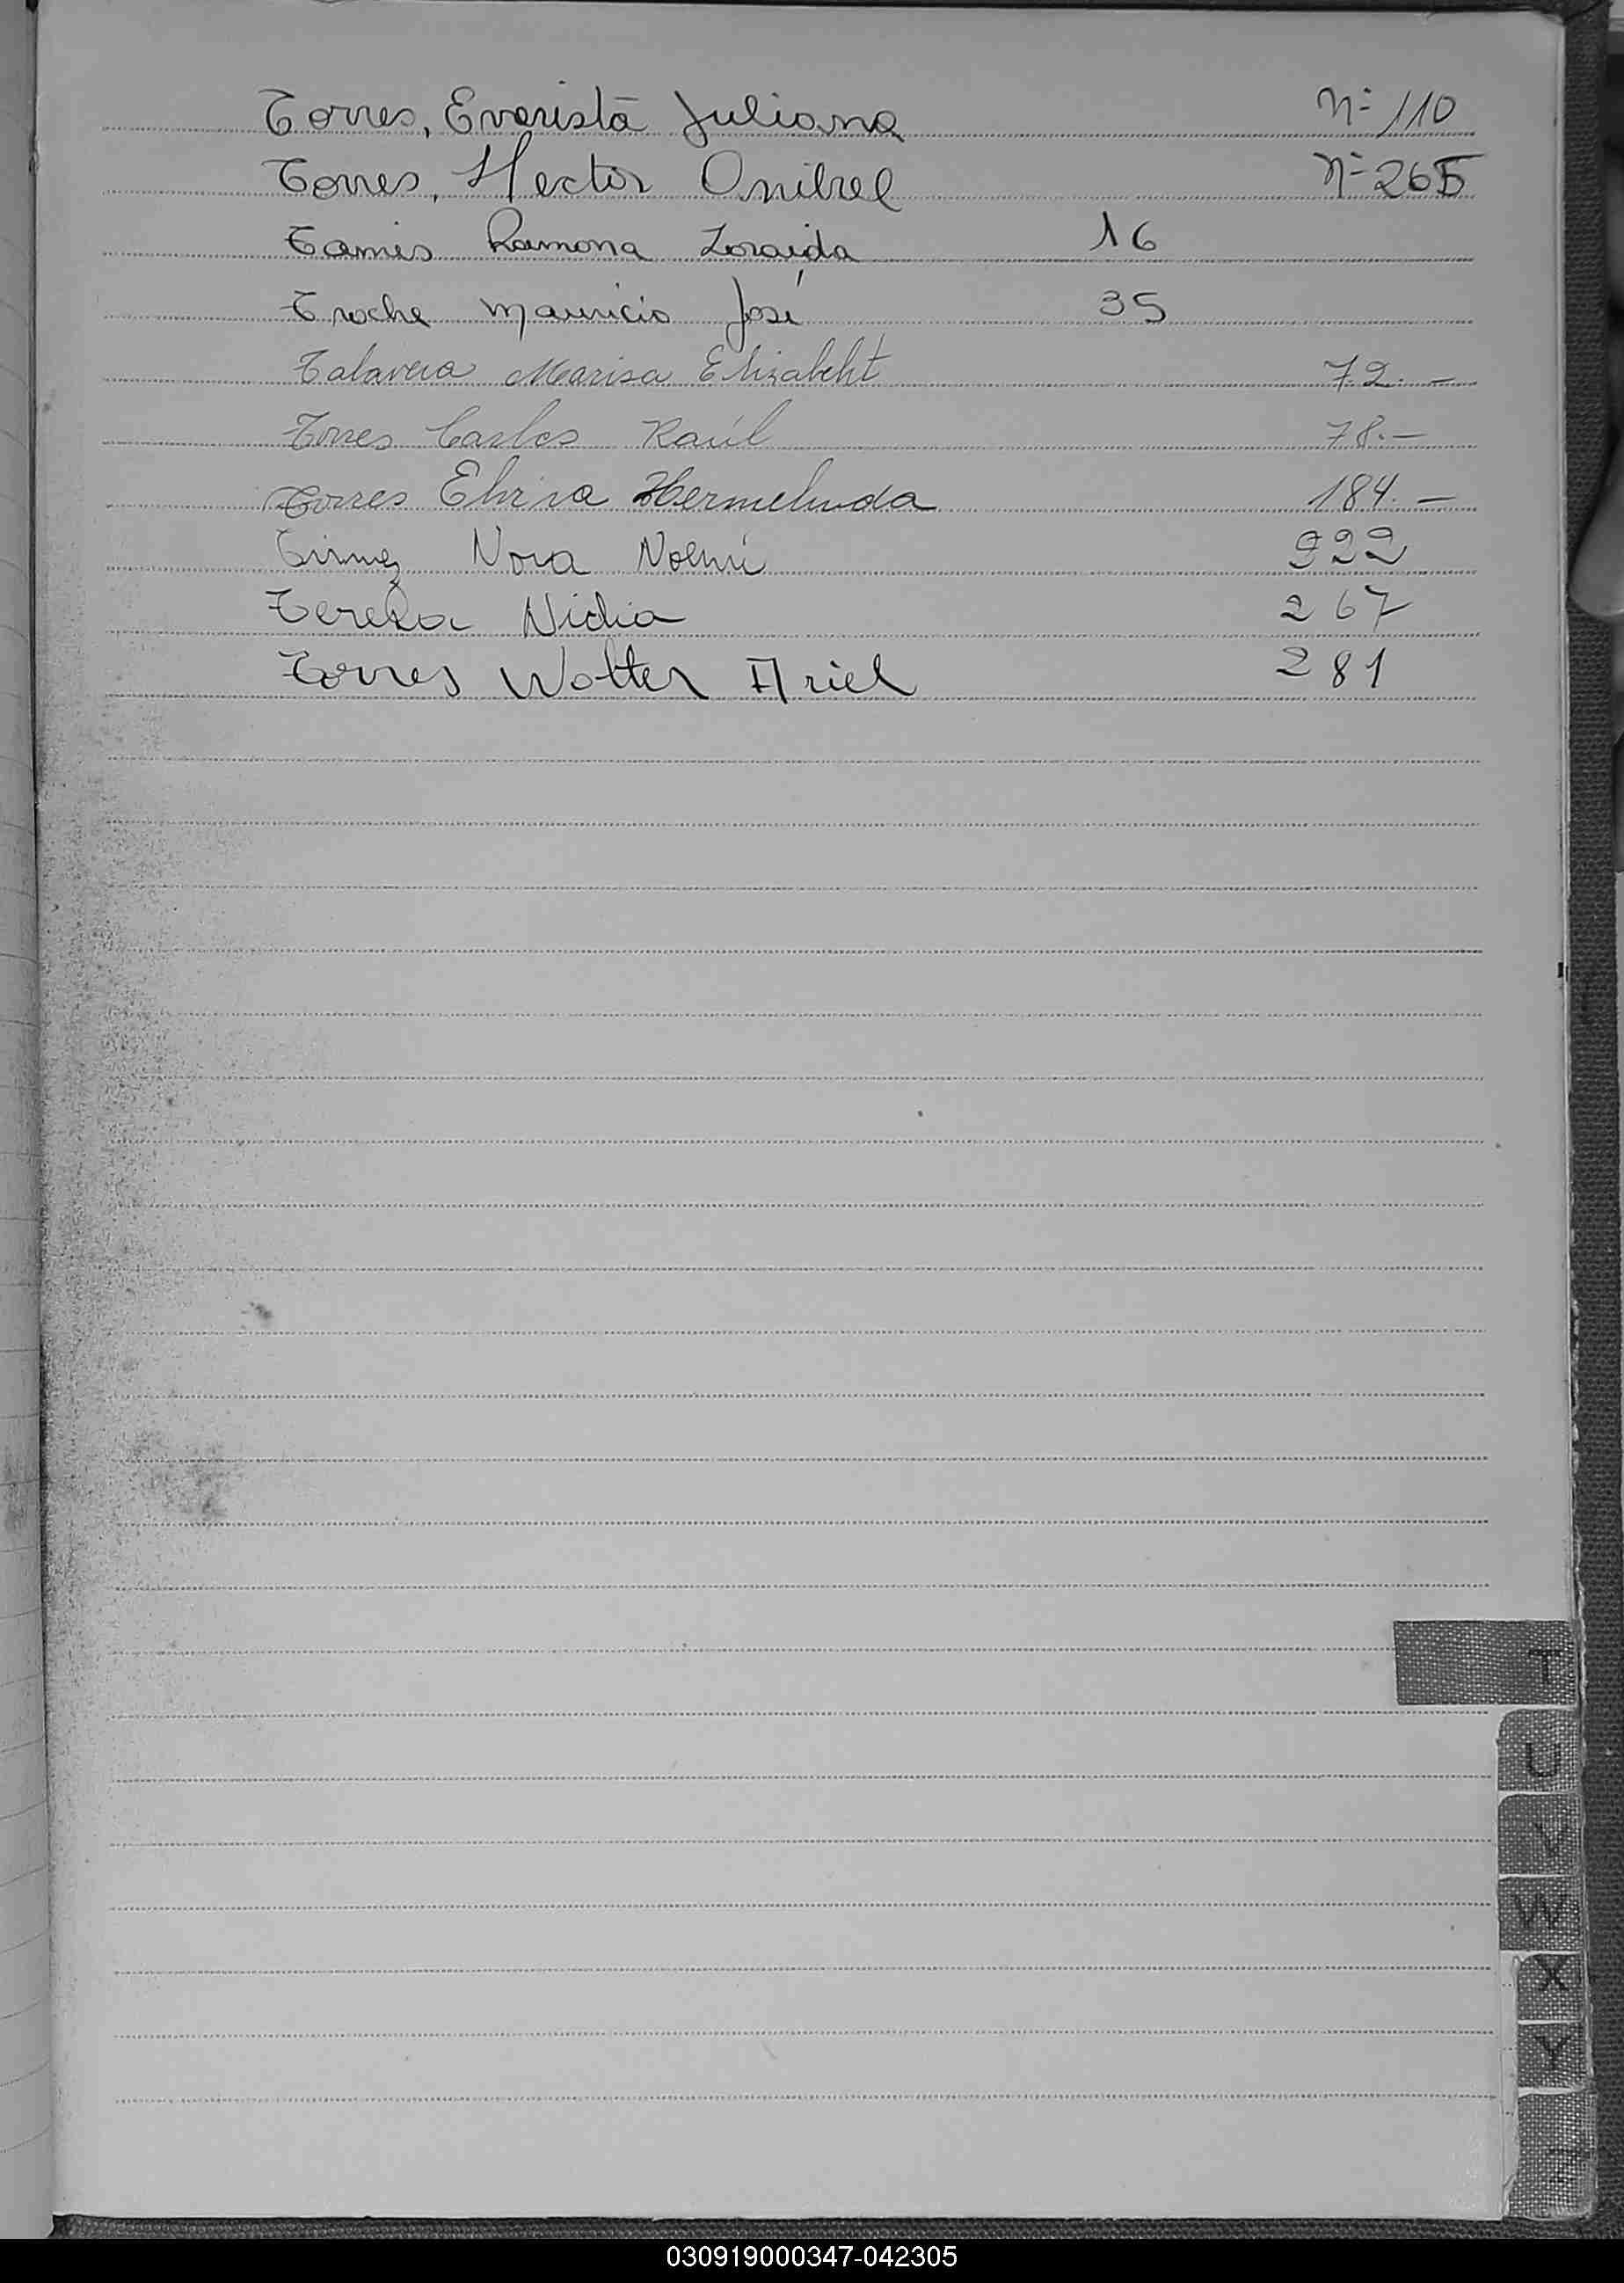 Torres, Evarista Juliana Nº 110
Torres, Hector Anibal Nº 265
Tamis Ramona Zoraida 16
Troche Mauricio José 35
Talavera Marisa Elizabeht 72.-
Torres Carlos Raúl 78.-
Torres Elvira Hermelinda 184.-
Nora Noemí 222
Nidia 267
Torres Walter Ariel 281
T
U
V
W
X
Y
Z
030919000347-042305